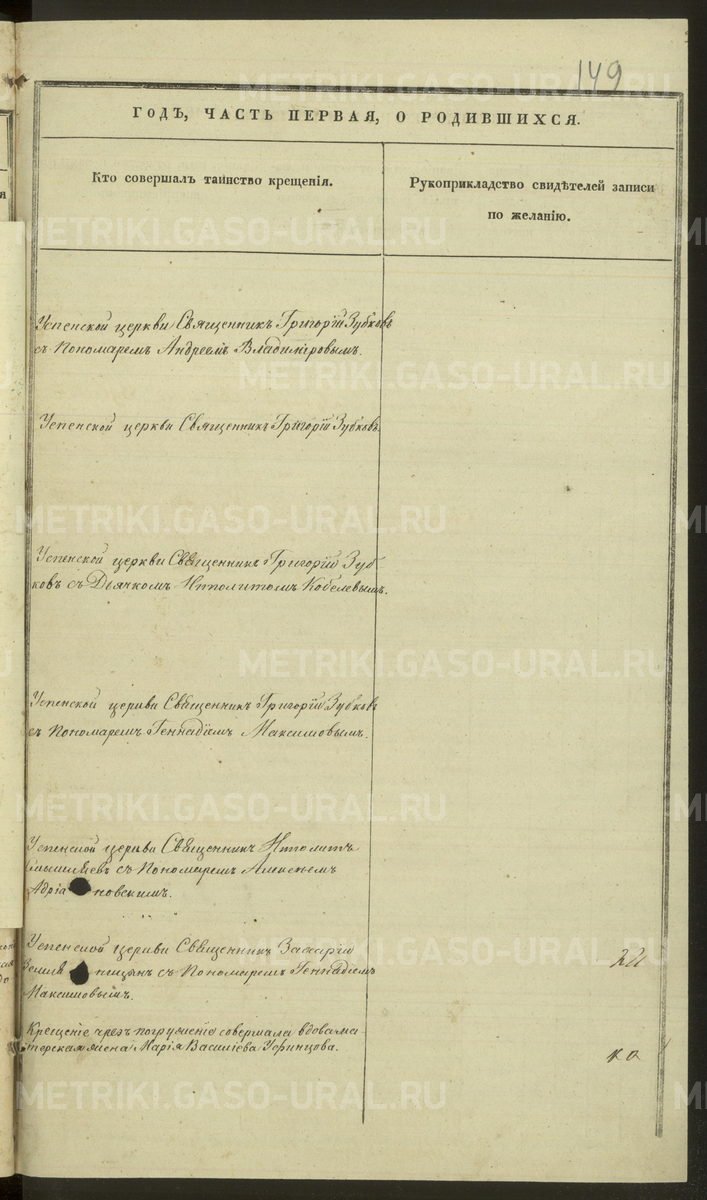 149
ГОДЪ, ЧАСТЬ ПЕРВАЯ, О РОДИВШИХСЯ.
Кто совершалъ таинство крещенія.
Рукоприкладство свидѣтелей записи
по желанію.
Успенской церкви Священникъ Григорій Зубковъ
съ Пономаремъ Андреемъ Владиміровымъ.
Успенской церкви Священникъ Григорій Зубковъ.
Успенской церкви Священникъ Григорій Зуб-
ковъ съ Дьячкомъ Иполитомъ Кобелевымъ.
Успенской церкви Священникъ Григорій Зубковъ
съ Пономаремъ Геннадіемъ Максимовымъ.
Успенской церкви Священникъ Иполитъ
Смышляевъ съ Пономаремъ Алексѣемъ
Адріановскимъ.
Успенской церкви Священникъ Захарій
съ Пономаремъ Геннадіемъ
Максимовымъ.
Крещеніе чрезъ погруженіе совершала вдова ма-
терская жена Марія Василіева
METRIKI.GASO-URAL.RU